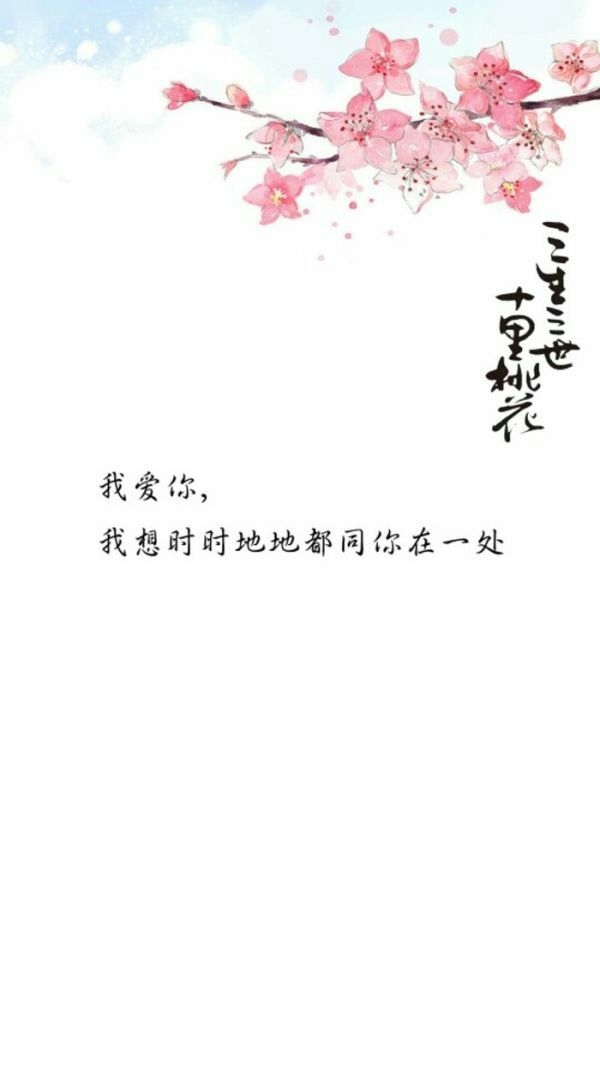 三生三世
十里桃花
我爱你,
我想时时地地都同你在一处